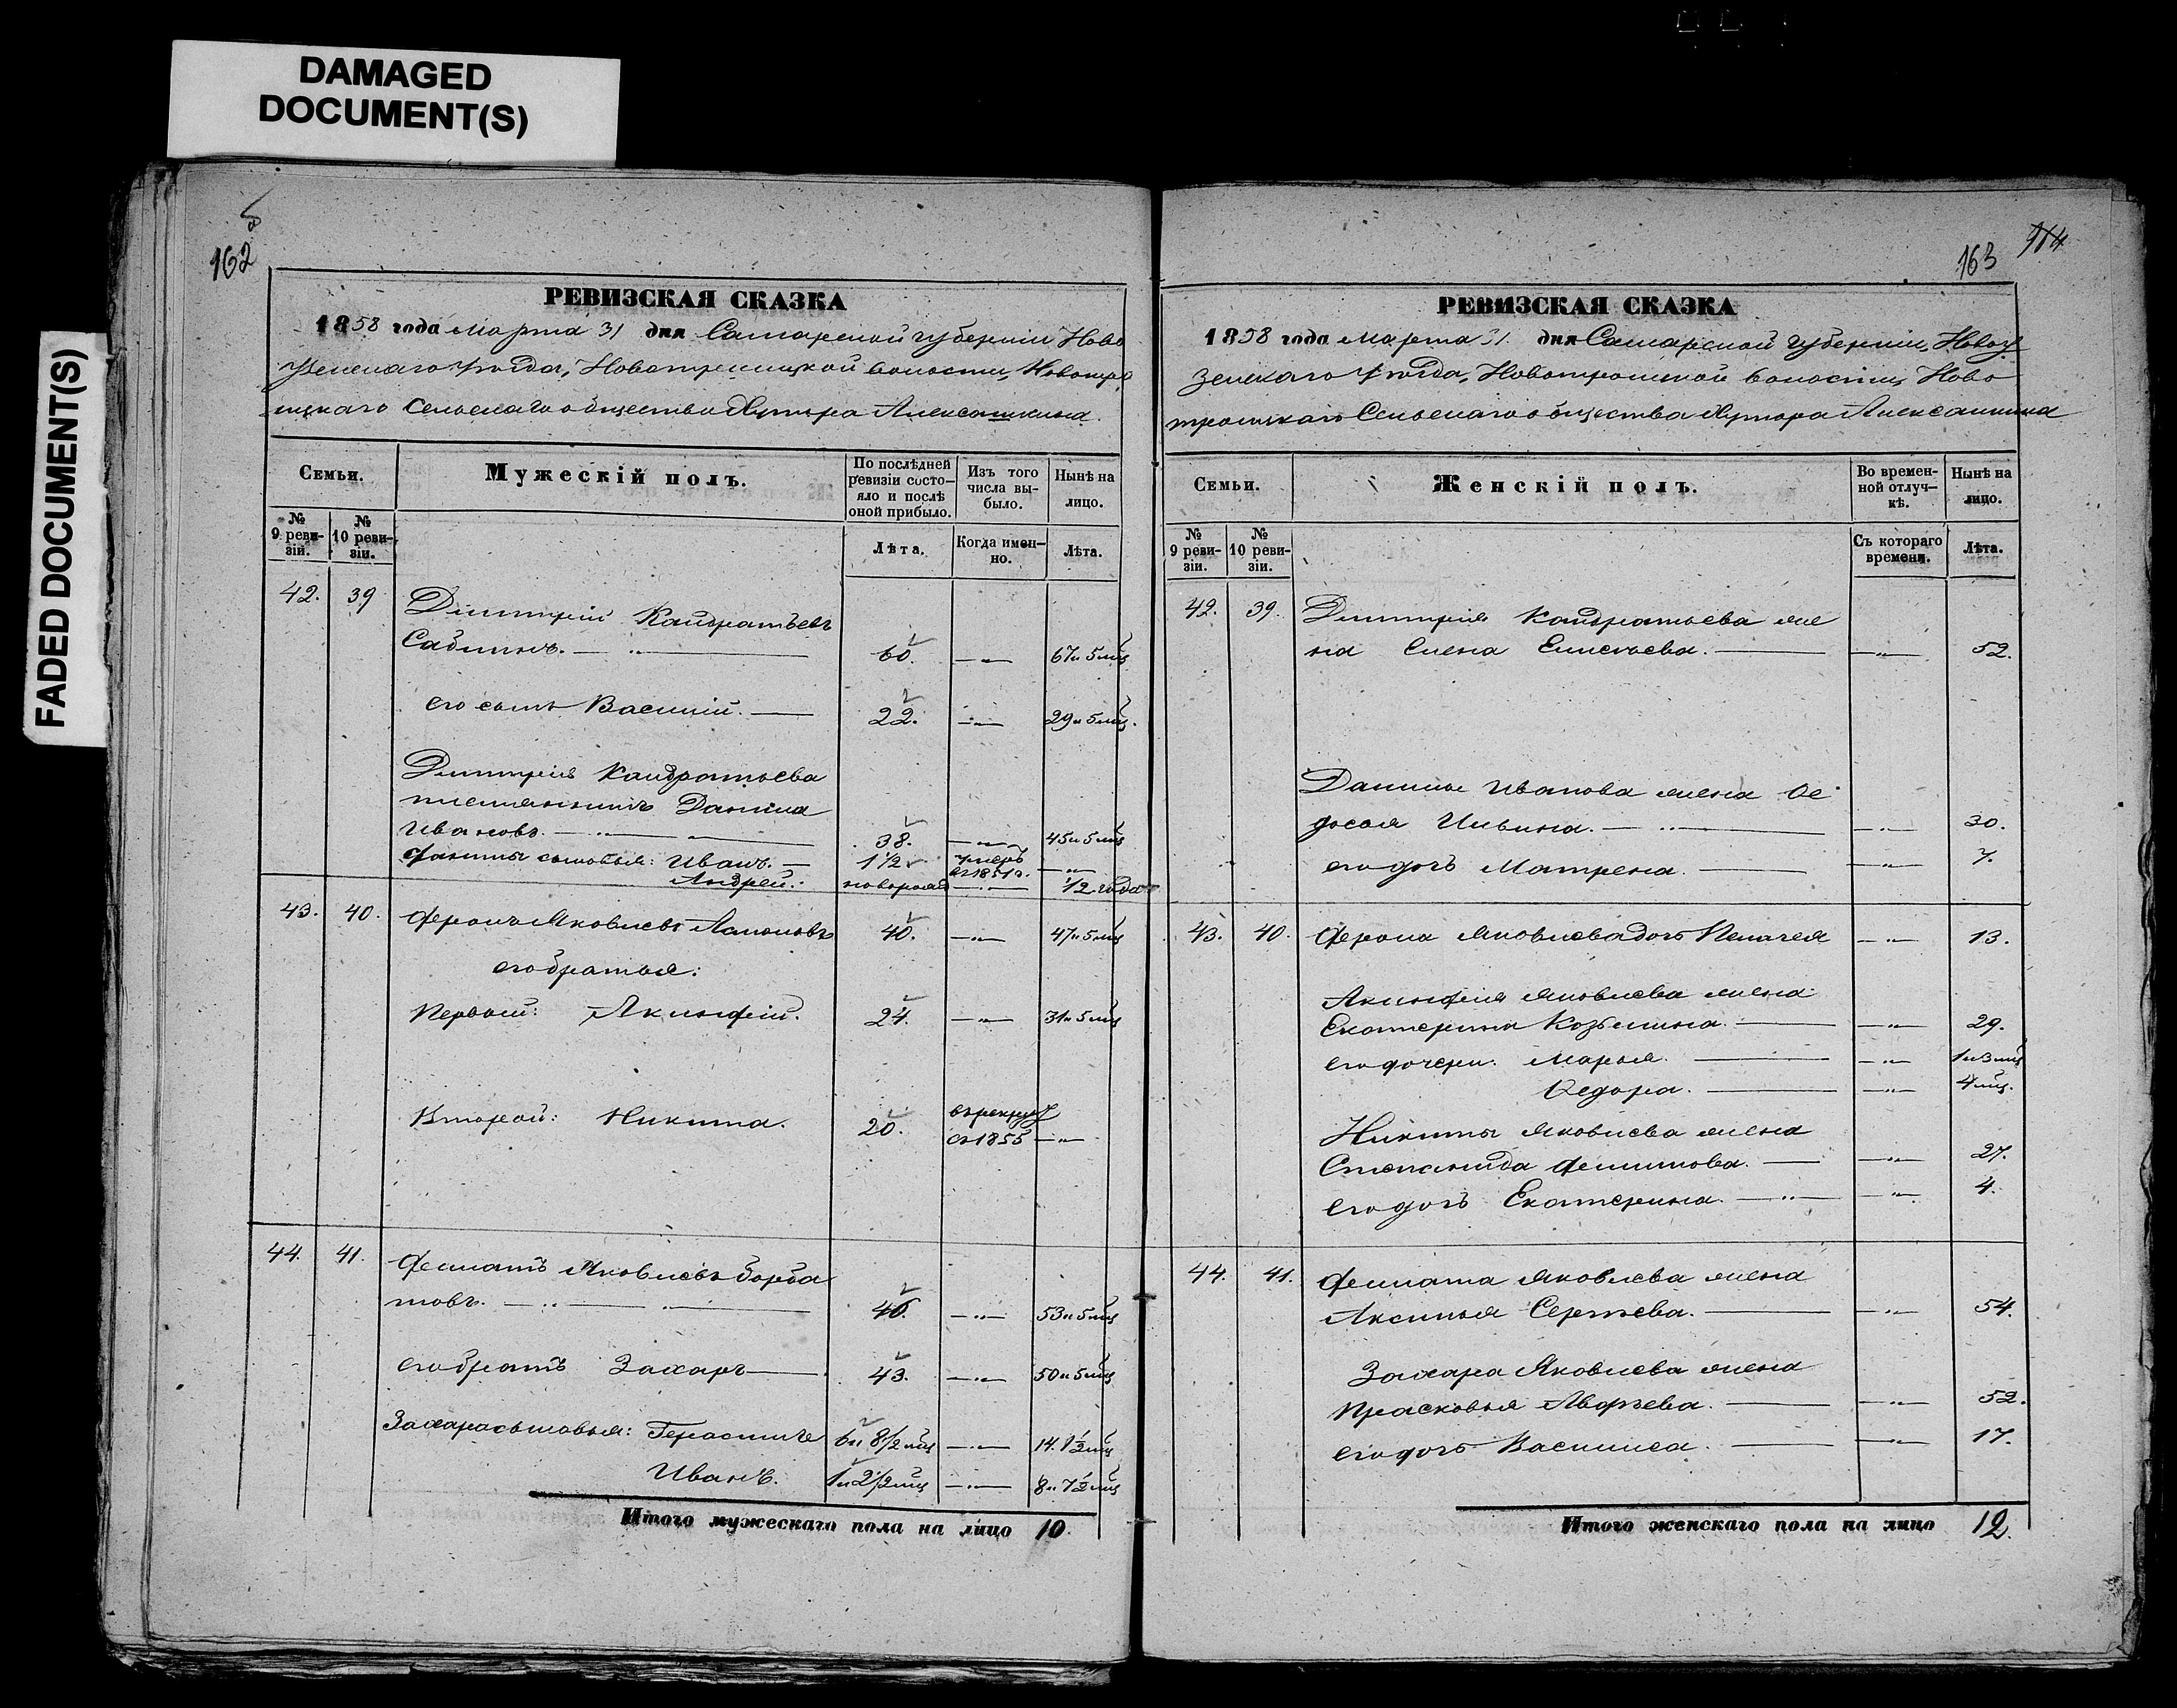 DAMAGED
DOCUMENT(S)
FADED DOCUMENT(S)
162
РЕВИЗСКАЯ СКАЗКА
1858 года Марта 31 дня Самарской губерніи Ново
узенскаго уѣзда, Новотроицкой волости, Новотро
ицкаго Сельскаго общества Хутора Алексашкина
Семьи.
Мужескій полъ.
По послѣдней ревизіи состо-яло и послѣ оной прибыло.
Изъ того числа вы-было.
Нынѣ на лицо.
№ 9 реви-зіи.
№ 10 реви-зіи.
Лѣта.
Когда имен-но.
Лѣта.
42. 39 Дмитрій Кандратьевъ
Сабининъ. 60. 67 и 5 мц
его сынъ Василій. 22. 29 и 5 мц.
Дмитрія Кандратьева
племянникъ Данила
Ивановъ. 38. 45 и 5 мц
Данилы сыновья: Иванъ. 1 1/2 умеръ въ 1851 г.
Андрей. новорожд 1/2 года
43. 40. Фролъ Яковлевъ 40. 47 и 5 мц
его братья:
Первый: Акинфій. 24. 31 и 5 мц
Второй: Никита. 20. въ рекруты
съ 1855
44. 41. Филатъ Яковлевъ Горба
товъ. 46. 53 и 5 мц
его братъ Захаръ 43. 50 и 5 мц
Захара сыновья: Герасимъ 6 и 8 1/2 мц 14. 1 1/2 мц
Иванъ. 1 и 2 1/2 мц 8 и 7 1/2 мц
Итого мужескаго пола на лицо 10.
163
РЕВИЗСКАЯ СКАЗКА
1858 года марта 31 дня Самарской губерніи, Новоу
зенскаго уѣзда, Новотроицкой волости, Ново
троицкаго Сельскаго общества Хутора Алексашкина
Семьи.
Женскій полъ.
Во времен-ной отлуч-кѣ.
Нынѣ на лицо.
№ 9 реви-зіи.
№ 10 реви-зіи.
Съ котораго времени.
Лѣта.
42. 39. Дмитрія Кандратьева же
на Елена Елисеева. 52.
Данилы Иванова жена Ѳе
досья Ильина. 30.
его дочь Матрена. 7.
43. 40. Фрола Яковлева дочь Пелагея 13.
Акинфія Яковлева жена
Екатерина Козьмина. 29.
его дочери: Марья. 1 и 3 мц
Ѳедора. 4 мц.
Никиты Яковлева жена
Степанида Филипова. 27.
его дочь Екатерина. 4.
44. 41. Филата Яковлева жена
Аксинья Сергѣева. 54.
Захара Яковлева жена
Прасковья 52.
его дочь Василиса. 17.
Итого женскаго пола на лицо 12.